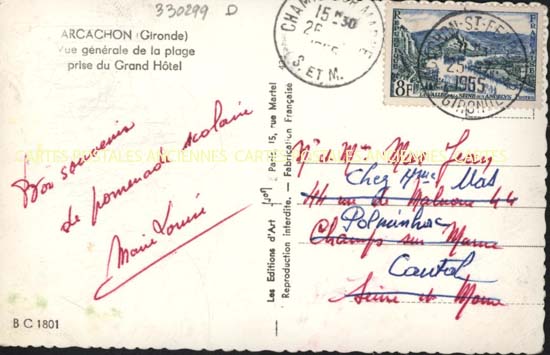 330299 D
ARCACHON (Gironde)
Vue générale de la plage
prise du Grand Hôtel
Bon souvenir
de promenade scolaire
Marie Louise
B C 1801
Les Editions d'Art
Paris 15, rue Martel
Reproduction interdite. - Fabrication Française
15-30
S. ET M.
8F
25
1955
GIRONDE
Mr et Mme
Chez Mme Mas
44 rue de 44
Polminhac
Champs sur Marne
Cantal
Seine et Marne
CARTES POSTALES ANCIENNES CARTES POSTALES ANCIENNES CARTES POSTALES ANCIENNES